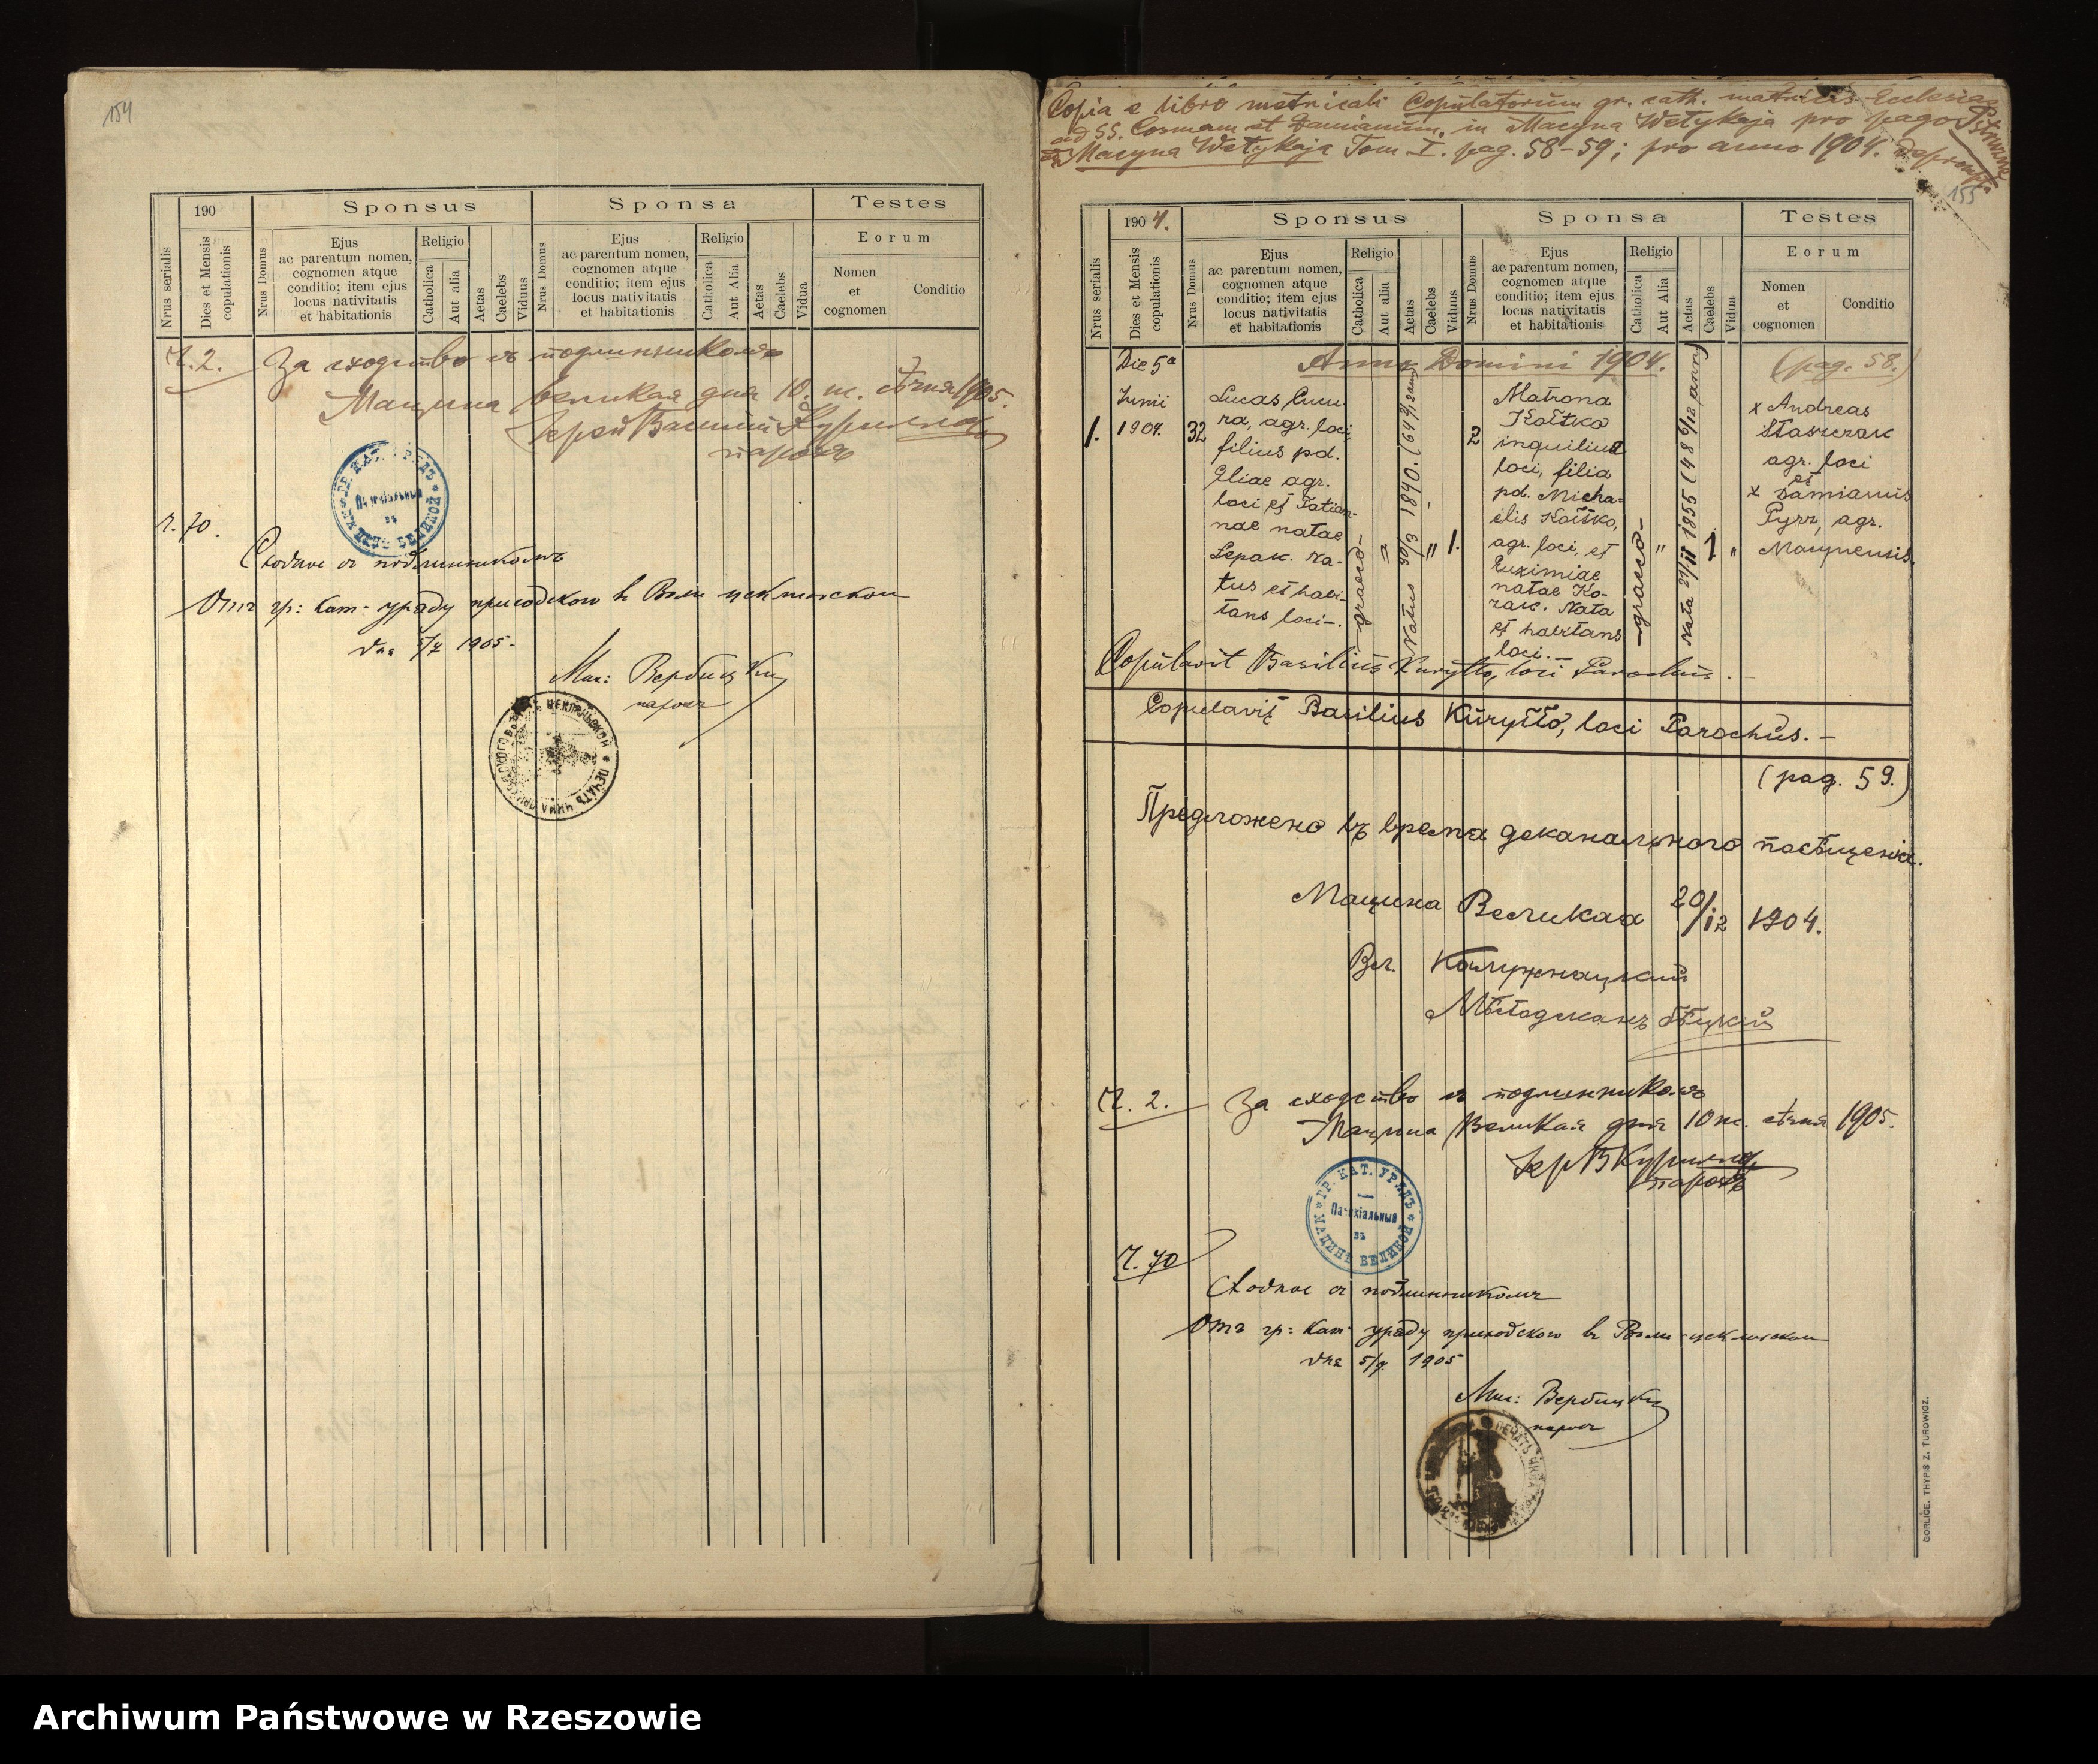 154
190
Sponsus
Sponsa
Testes
Nrus serialis
Dies et Mensis copulationis
Nrus Domus
Ejus
ac parentum nomen,
cognomen atque
conditio; item ejus
locus nativitatis
et habitationis
Religio
Catholica
Aut alia
Aetas
Caelebs
Viduus
Nrus Domus
Ejus
ac parentum nomen,
cognomen atque
conditio; item ejus
locus nativitatis
et habitationis
Religio
Catholica
Aut Alia
Aetas
Caelebs
Vidua
Eorum
Nomen
et
cognomen
Conditio
Ч. 2. За сходство съ подлинникомъ
Мацина великая дня 10. м. сѣчня 1905.
Іерей Василий Курилло
парохъ
ГР. КАТ. УРЯДЪ
Парохіальный
въ
МАЦИНѢ ВЕЛИКОЙ
Ч. 70.
Сходное съ подлинникомъ
Отъ гр: кат. уряду приходского въ Воли цеклинской
дня 5/7 1905.
Мих: Вербицкій
парохъ
Copia e libro metricali Copulatorum gr. cath. matricis Ecclesiae
ad SS. Cosmam et Damianum, in Macyna Welykaja pro pago
Macyna Wełykaja Tom I. pag. 58-59; pro anno 1904. deprompta
155
1904.
Sponsus
Sponsa
Testes
Nrus serialis
Dies et Mensis copulationis
Nrus Domus
Ejus
ac parentum nomen,
cognomen atque
conditio; item ejus
locus nativitatis
et habitationis
Religio
Catholica
Aut alia
Aetas
Caelebs
Viduus
Nrus Domus
Ejus
ac parentum nomen,
cognomen atque
conditio; item ejus
locus nativitatis
et habitationis
Religio
Catholica
Aut Alia
Aetas
Caelebs
Vidua
Eorum
Nomen
et
cognomen
Conditio
Anno Domini 1904.
(pag. 58.)
1.
Die 5ª
Junii
1904.
32
Lucas Cucu
ra, agr. loci,
filius pd.
Eliae agr.
loci et Tatian-
nae natae
Lepak. Na-
tus et habi-
tans loci-.
-graeco-
"
Natus 30/3 1840. (64
"
1.
2
Matrona
Kołtko
inquilina
loci, filia
pd. Micha-
elis Kołtko,
agr. loci, et
Euximiae
natae Ko-
zak. Nata
et habitans
loci.-
-graeco-
"
Nata 21/11 1855 (48 6/12 ann)
1.
"
x Andreas
Stawczak
agr. loci
et
x Damianus
Pyrz, agr.
Macynensis.
Copulavit Basilius Kuryłło, loci Parochus.
Copulavit Basilius Kuryłło, loci Parochus.-
(pag. 59.)
Предложено въ время деканального посѣщенія.
Мацина Великая 20/12 1904.
Вл. Калужняцкий
Мѣстодеканъ Бѣцкій
Ч. 2. За сходство съ подлинникомъ
Мацина Великая дня 10 м. сѣчня 1905.
Іер В Курилло
парохъ
ГР. КАТ. УРЯДЪ
Парохіальный
въ
МАЦИНѢ ВЕЛИКОЙ
Ч. 70
Сходное съ подлинникомъ
Отъ гр: кат. уряду приходского въ Воли цеклинской
дня 5/7. 1905
Мих: Вербицкій
парохъ
GORLICE. THYPIS Z. TUROWICZ.
Archiwum Państwowe w Rzeszowie